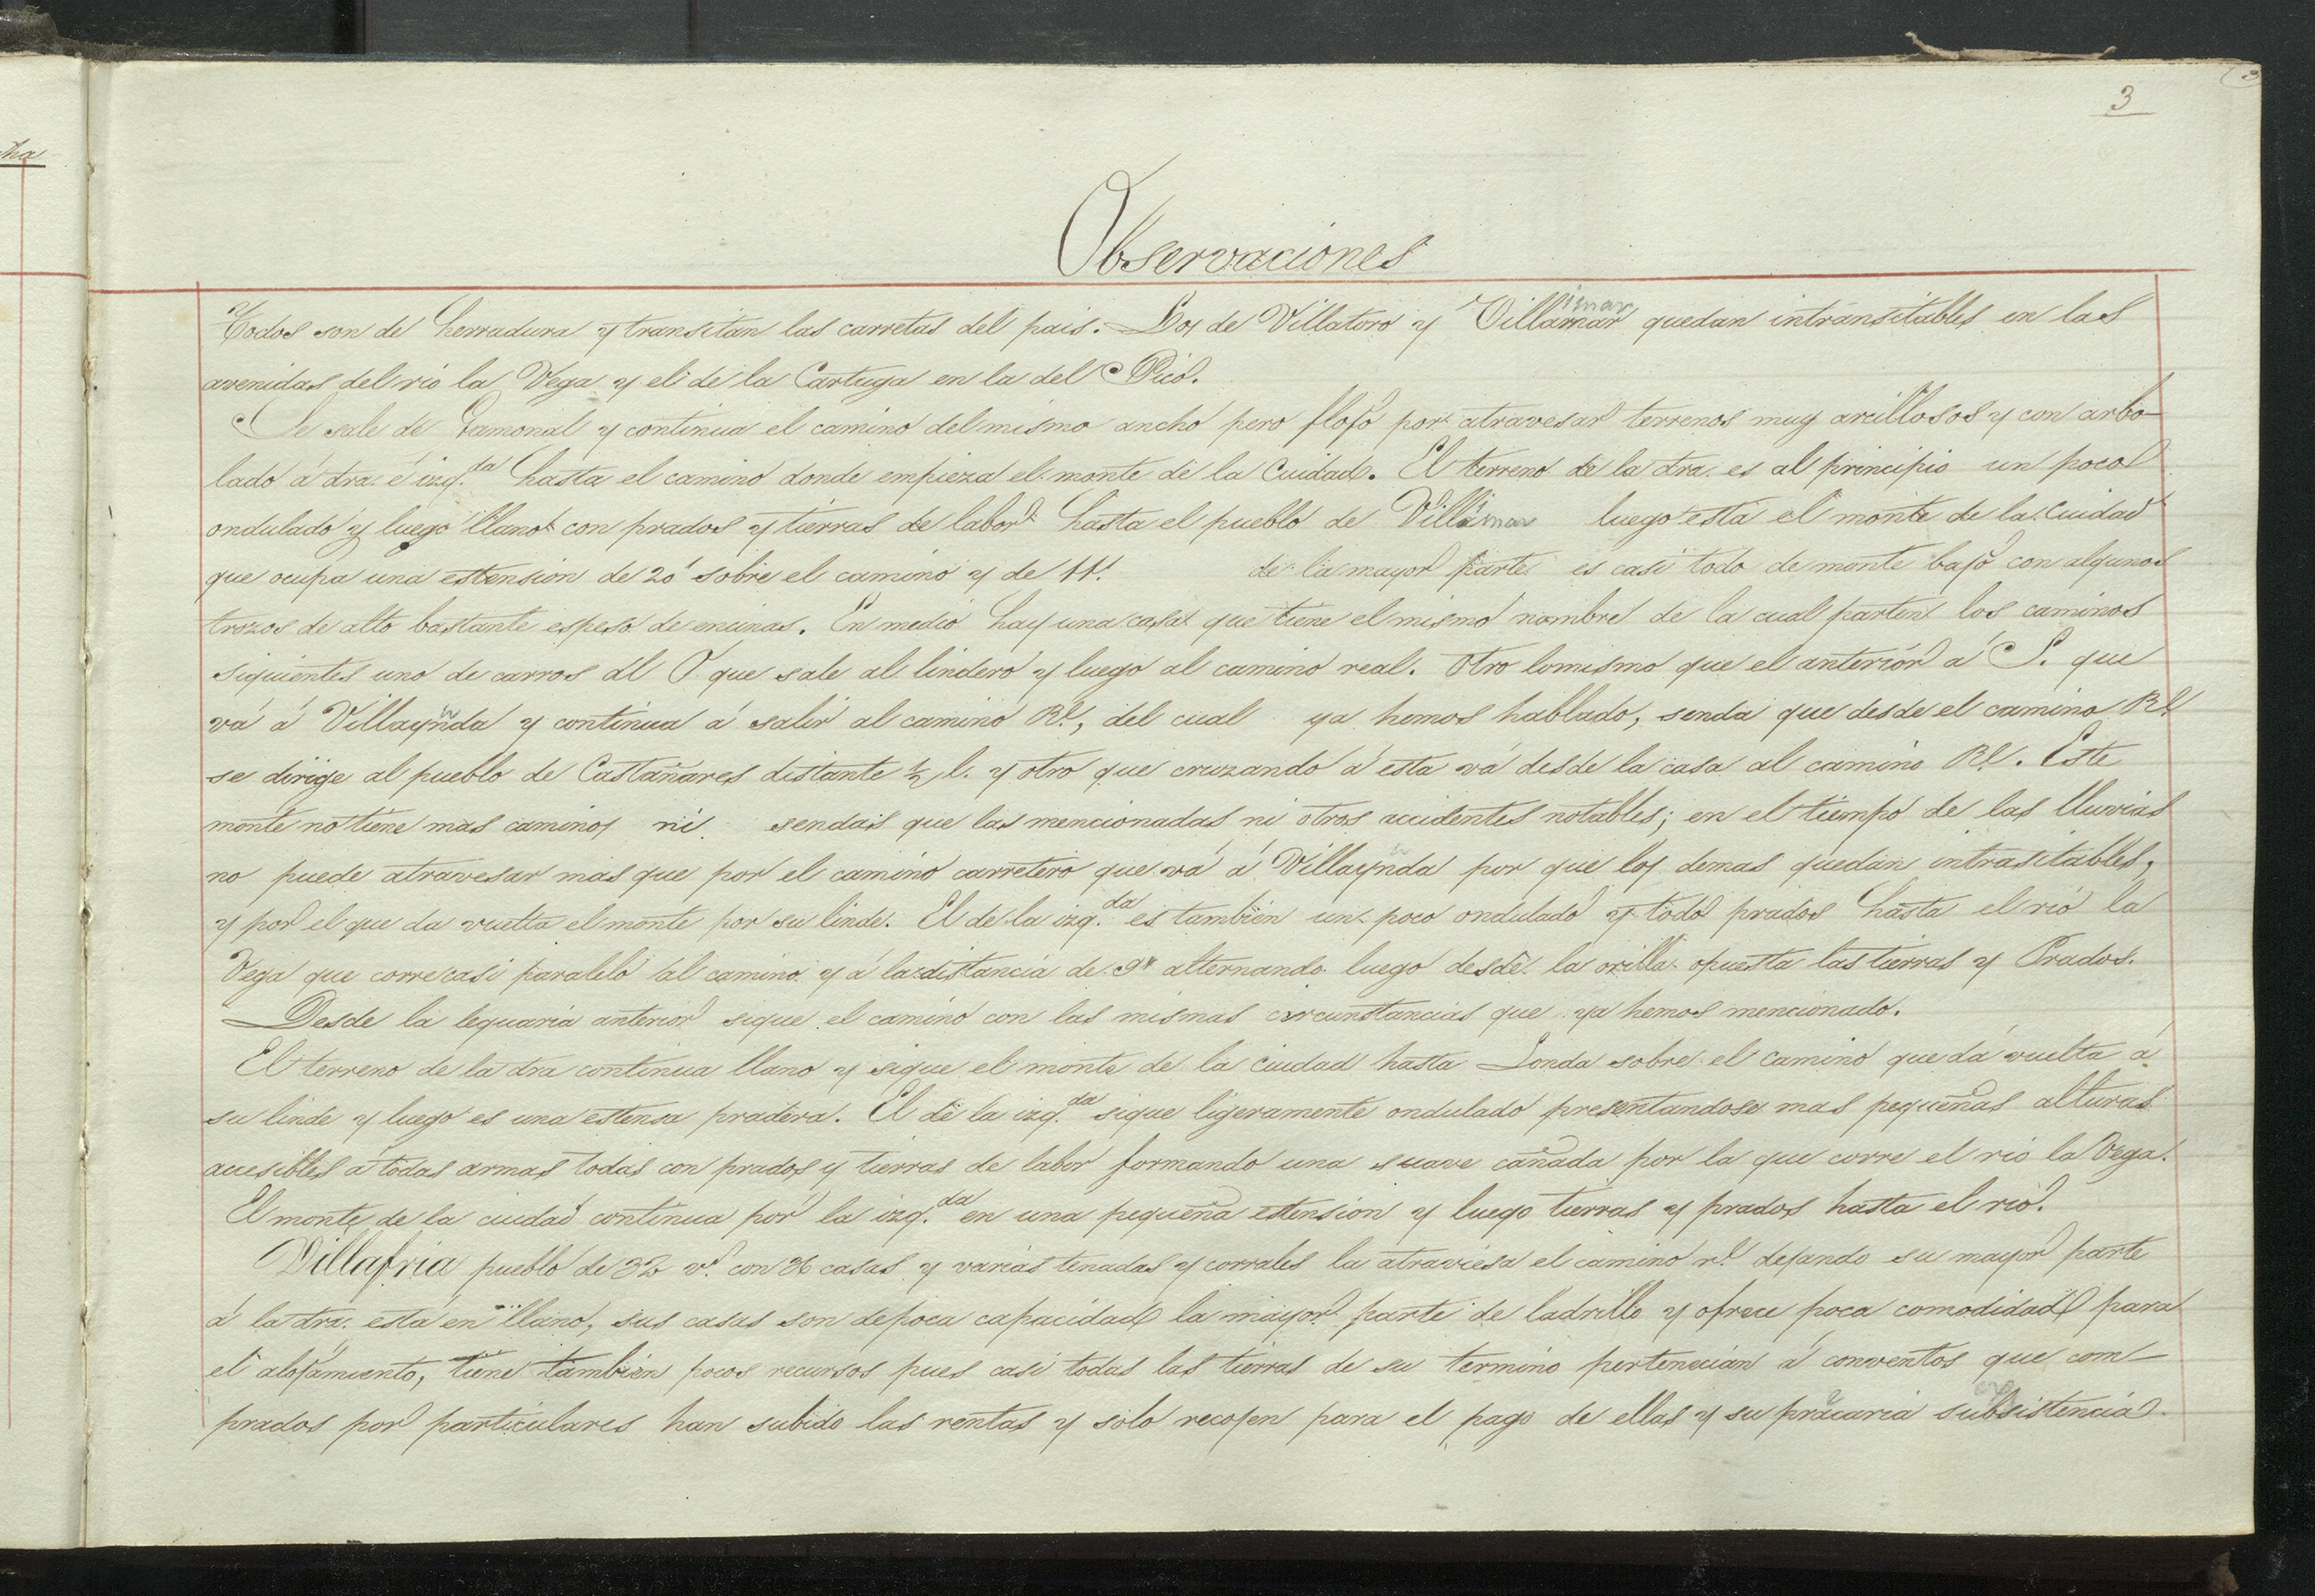 3
Observaciones
Todos son de herradura y transitan las carretas del pais. Los de Villatoro y Villamar quedan intransitables en las
avenidas del rio la Vega y el de la Cartuga en la del Pico.
Se sale de Gamonal y continua el camino del mismo ancho pero flojo por atravesar terrenos muy arcillosos y con arbo-
lado á dra. é izq.da hasta el camino donde empieza el monte de la Cuidad. El terreno de la dra. es al principio un poco
ondulado y luego llano con prados y tierras de labor hasta el pueblo de Villamar luego está el monte de la Cuidad
que ocupa una estension de 20' sobre el camino y de 11' de la mayor parte es casi todo de monte bajo con algunos
trozos de alto bastante espeso de encinas. En medio hay una casa que tiene el mismo nombre de la cual parten los caminos
siguientes uno de carros al O. que sale al lindero y luego al camino real. Otro lo mismo que el anterior á S. que
vá á Villaynda y continua á salir al camino Rl., del cual ya hemos hablado, senda que desde el camino Rl.
se dirige al pueblo de Castañares distante ½ l. y otro que cruzando á esta vá desde la casa al camino Rl. Este
monte no tiene mas caminos ni sendas que las mencionadas ni otros accidentes notables; en el tiempo de las lluvias
no puede atravesar mas que por el camino carretero que vá á Villaynda por que los demas quedan intrasitables,
y por el que da vuelta el monte por su linde. El de la izq.da es tambien un poco ondulado y todo prados hasta el rio la
Vega que corre casi paralelo al camino y á la distancia de 9' alternando luego desde la orilla opuesta las tierras y Prados.
Desde la leguaria anterior sigue el camino con las mismas circunstancias que ya hemos mencionado.
El terreno de la dra continua llano y sigue el monte de la Ciudad hasta Londa sobre el camino que dá vuelta á
su linde y luego es una estensa pradera. El de la izq.da sigue ligeramente ondulado presentandose mas pequeñas alturas
accesibles á todas armas todas con prados y tierras de labor formando una suave cañada por la que corre el rio la Vega.
El monte de la ciudad continua por la izq.da en una pequeña estension y luego tierras y prados hasta el rio.
Villafria pueblo de 32 v.s con 36 casas y varias tenadas y corrales la atraviesa el camino rl. dejando su mayor parte
á la dra. está en llano, sus casas son de poca capacidad la mayor parte de ladrillo y ofrece poca comodidad para
el alojamiento, tiene tambien pocos recursos pues casi todas las tierras de su termino pertenecian á conventos que com-
prados por particulares han subido las rentas y solo recojen para el pago de ellas y su pracaria subsistencia.